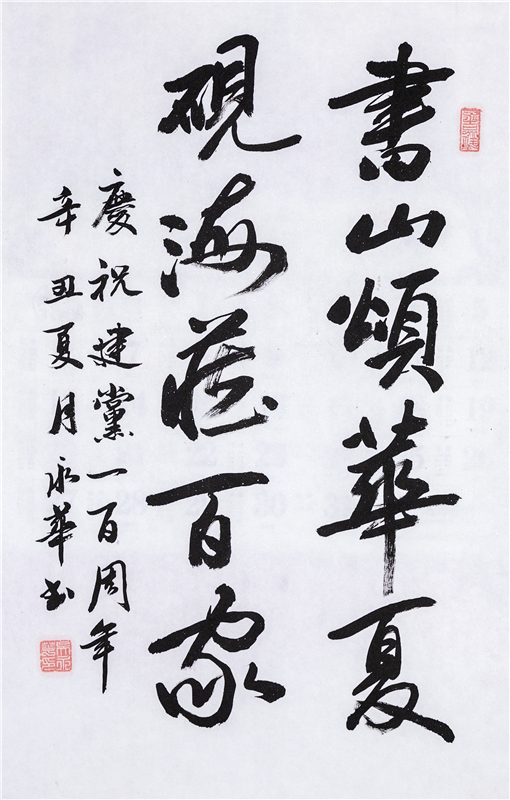 書山頌華夏
硯海藏百家
慶祝建黨一百周年
辛丑夏月永華书